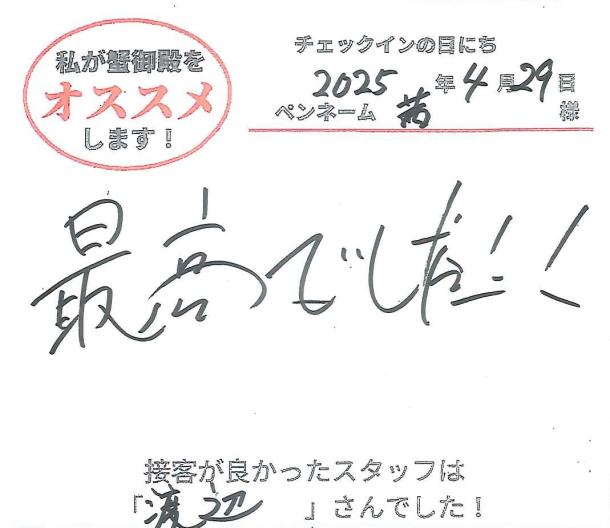 私が蟹御殿を
オススメ
します！
チェックインの日にち
2025年4月29日
ペンネーム 茜 様
最高でした！！
接客が良かったスタッフは
「渡辺」さんでした！